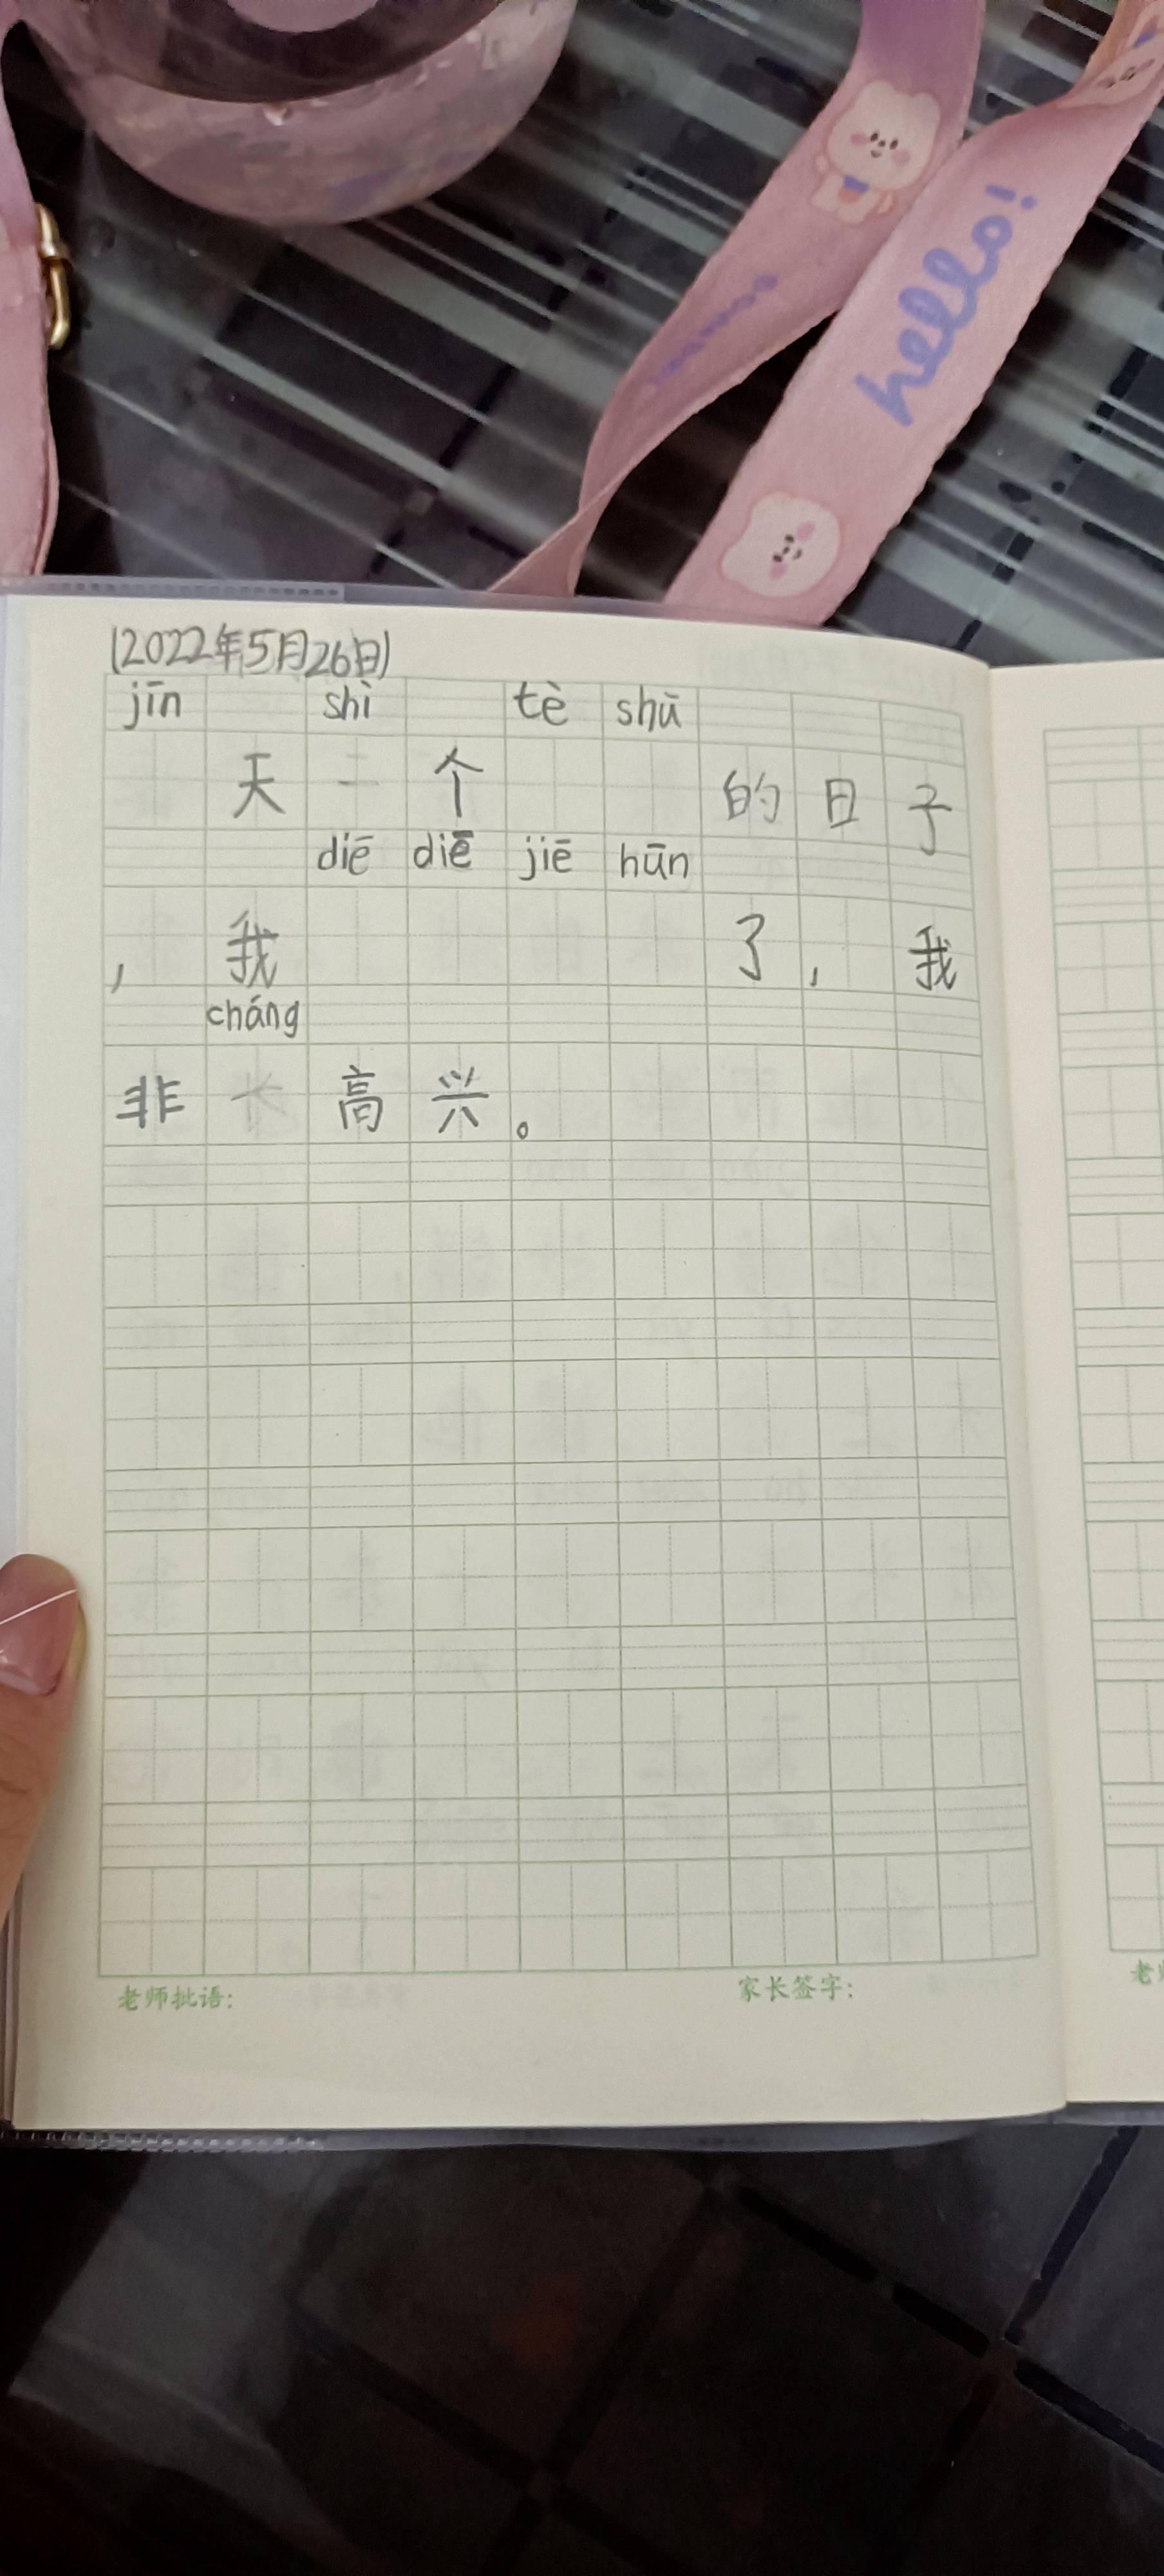 hello!
(2022年5月26日)
jīn shì tè shū
天 个 的 日 子
diē diē jiē hūn
, 我 了 , 我
cháng
非 长 高 兴 。
老师批语: 家长签字: